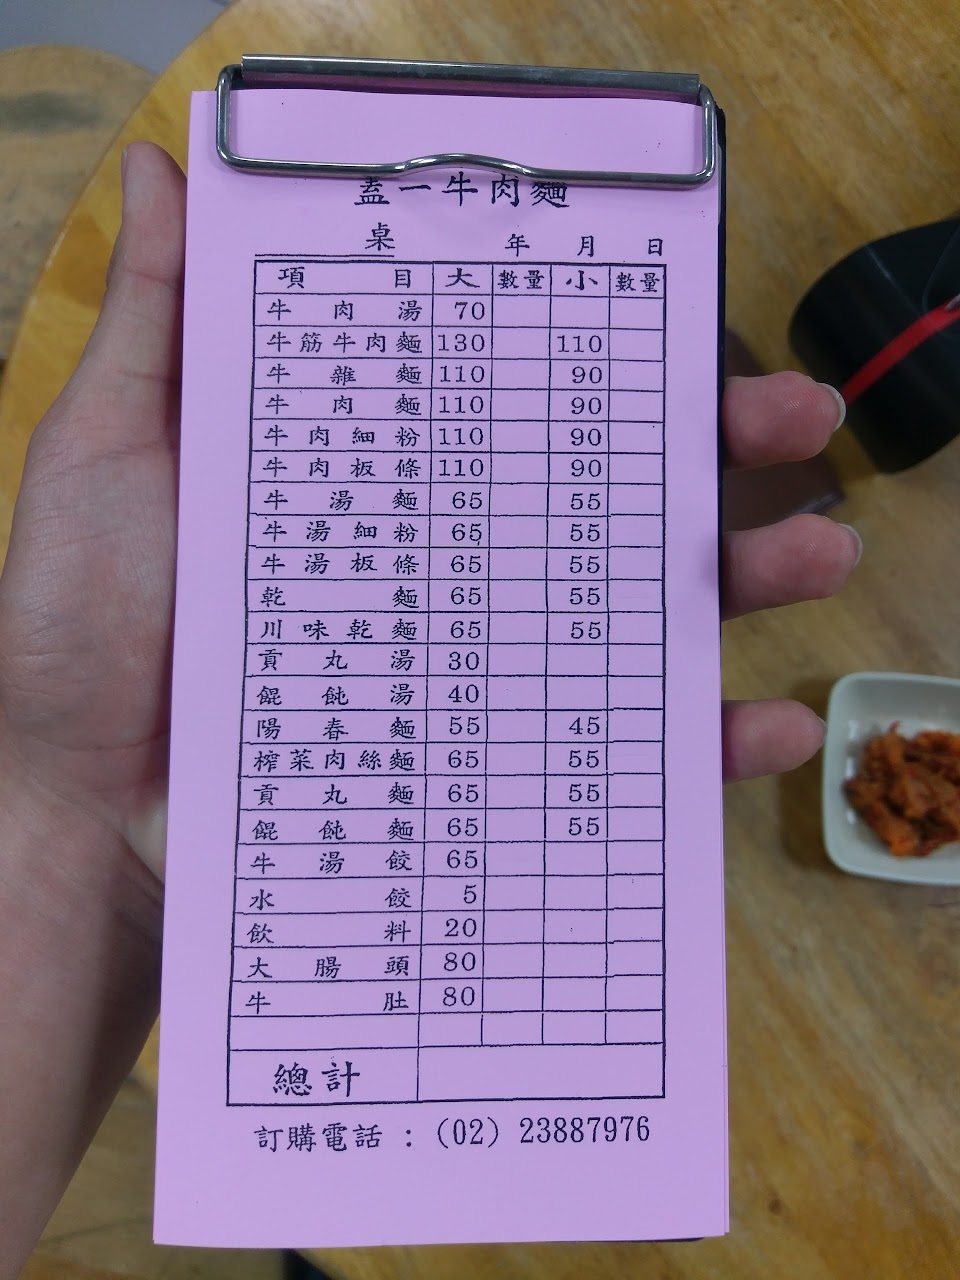 蓋一牛肉麵
桌 年 月 日
項目 大 數量 小 數量
牛肉湯 70
牛筋牛肉麵 130 110
牛雜麵 110 90
牛肉麵 110 90
牛肉細粉 110 90
牛肉板條 110 90
牛湯麵 65 55
牛湯細粉 65 55
牛湯板條 65 55
乾麵 65 55
川味乾麵 65 55
貢丸湯 30
餛飩湯 40
陽春麵 55 45
榨菜肉絲麵 65 55
貢丸麵 65 55
餛飩麵 65 55
牛湯餃 65
水餃 5
飲料 20
大腸頭 80
牛肚 80
總計
訂購電話：(02) 23887976